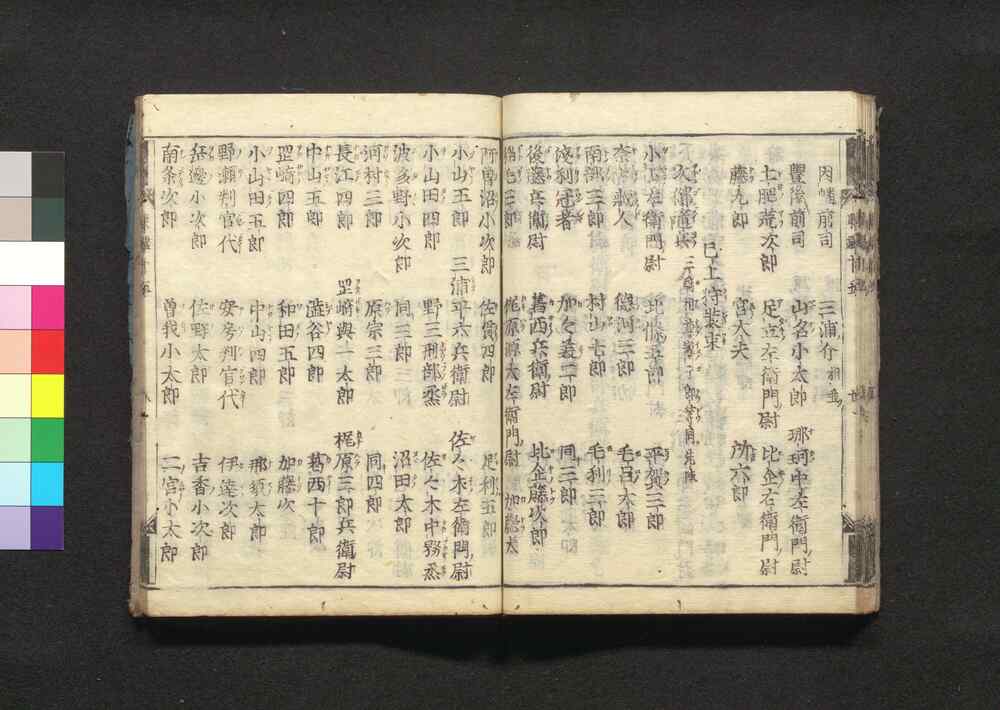 因幡前司 三浦介相並
豐後前司 山名小太郎 那珂中左衛門尉
土肥荒次郎 足立左衛門尉 比企右衛門尉
藤九郎 宮大夫 所六郎
已上狩裝束
次御隨兵
小山左衛門尉 北條五郎 平賀三郎
奈胡藏人 德河三郎 毛呂太郎
南部三郎 村山七郎 毛利三郎
淺利冠者 加々美二郎 同三郎
後藤兵衛尉 葛西兵衛尉 比企藤次郎
梶原源太左衛門尉 加藤太
阿曽沼小次郎 佐貫四郎 足利五郎
小山五郎 三浦平六兵衛尉 佐々木左衛門尉
小山田四郎 野三刑部丞 佐々木中務丞
波多野小次郎 同三郎 沼田太郎
河村三郎 原宗三郎 同四郎
長江四郎 岡崎與一太郎 梶原三郎兵衛尉
中山五郎 澁谷四郎 葛西十郎
岡崎四郎 和田五郎 加藤次
小山田五郎 中山四郎 那須太郎
野瀬判官代 安房判官代 伊達次郎
小次郎 佐野太郎 吉香小次郎
南条次郎 曽我小太郎 二宮小太郎